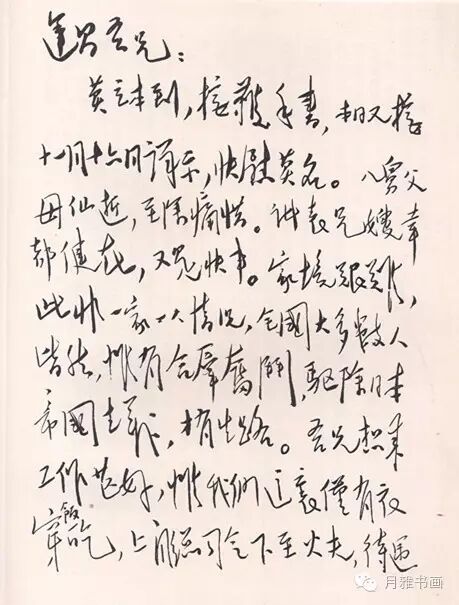 運昌吾兄：
莫立本到，接獲手書，本日又接
十一月十六日詳示，快慰莫名。八舅父
母仙逝，至深痛惜。諸表兄嫂幸
都健在，又是快事。家境艱難，
此非一家一人情況，全國大多數人
皆然，惟有合羣奮鬥，驅除日本
帝國主義，才有生路。吾兄想來
工作甚好，惟我們這裏僅有衣
穿飯吃，上自總司令下至火夫，待遇
月雅书画